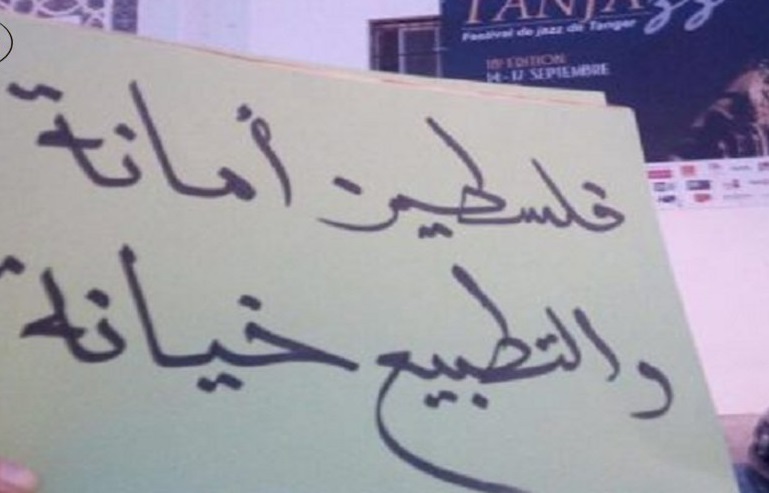 TANJAzz
Festival de jazz de Tanger
18e EDITION
14-17 SEPTEMBRE
فلسطين أمانة
والتطبيع خيانة